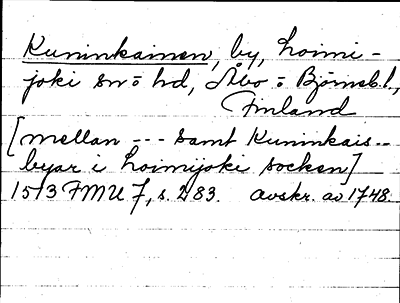 Kuninkainen, by, Loimi-
joki sn o hd, Åbo o Björnebl.,
Finland
[mellan --- samt Kuninkais --
byar i Loimijoki socken]
1513 FMU 7, s. 283. avskr. av 1748.